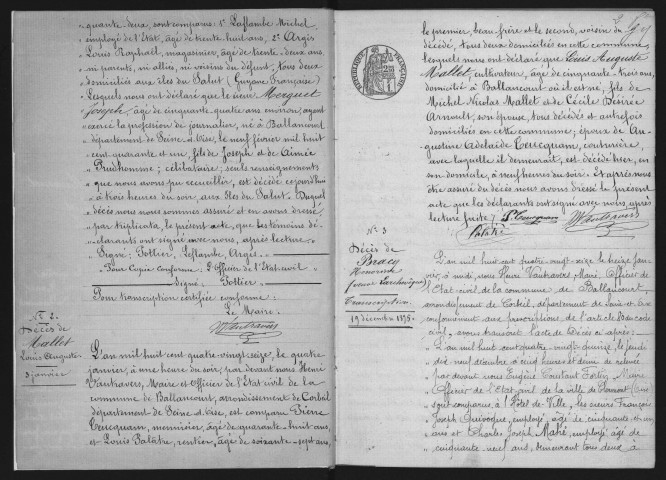 quante deux, sont comparus: 1° Laflambe Michel
employé de l'Etat, âgé de trente-huit ans, 2° Argis
Louis Raphaël, magasinier, âgé de trente-deux ans,
ni parents, ni alliés, ni voisins du défunt, tous deux
domiciliés aux îles du Salut (Guyane Française)
Lesquels nous ont déclaré que le sieur Morguet
Joseph, âgé de cinquante quatre ans environ, ayant
exercé la profession de journalier, né à Ballancourt
département de Seine et Oise, le neuf février mil huit
cent quarante et un fils de Joseph et de Aimée
Prudhomme; célibataire; seuls renseignements
que nous avons pu recueillir, est décédé cejourd'hui
à trois heures du soir, aux îles du Salut. Duquel
décès nous nous sommes assuré et en avons dressé
par triplicata, le présent acte, que les témoins dé-
clarants ont signé avec nous, après lecture.
Signé: Pottier, Laflambe, Argis.
Pour Copie conforme: l'Officier de l'Etat-civil
Signé: Pottier
Pour transcription certifiée conforme:
Le Maire,
Vautravers
N° 2.
Décès de
Mallet
Louis Auguste
3 janvier
L'an mil huit cent quatre-vingt-seize, le quatre
janvier, à une heure du soir; par devant nous Henri
Vautravers, Maire et Officier de l'Etat civil de la
commune de Ballancourt, arrondissement de Corbeil
département de Seine et Oise, est comparu Pierre
Cercquam, menuisier, âgé de quarante-huit ans,
et Louis Palâtre, rentier, âgé de soixante-sept ans,
le premier, beau-frère et le second, voisin du
décédé, tous deux domiciliés en cette commune,
lesquels nous ont déclaré que Louis Auguste
Mallet, cultivateur, âgé de cinquante-trois ans,
domicilié à Ballancourt où il est né, fils de
Michel Nicolas Mallet et de Cécile Désirée
Arnoult, son épouse, tous décédés et autrefois
domiciliés en cette commune; époux de Au-
gustine Adélaïde Cercquam, couturière,
avec laquelle il demeurait, est décédé hier, en
son domicile, à neuf heures du soir. Et après nous
être assuré du décès nous avons dressé le présent
acte que les déclarants ont signé avec nous, après
lecture faite;
Vautravers
N° 3
Décès de
Bracq
Honoré
Transcription.
19 décembre 1875
L'an mil huit cent quatre-vingt-seize le treize jan-
vier, à midi, nous Henri Vautravers, Maire, Officier de
l'Etat-civil de la commune de Ballancourt,
arrondissement de Corbeil, département de Seine-et-Oise
conformément aux prescriptions de l'article du code
civil, avons transcrit l'acte de Décès ci-après:
L'an mil huit cent quatre-vingt-quinze, le jeudi
dix neuf décembre à cinq heures et demie de relevée
par devant nous Eugène Constant Maire
Officier de l'Etat civil de la ville de
sont comparus à l'Hôtel-de-Ville, les sieurs François
Joseph employé, âgé de cinquante et un
ans et Charles Joseph Mahé, employé âgé de
cinquante neuf ans, demeurant tous deux à